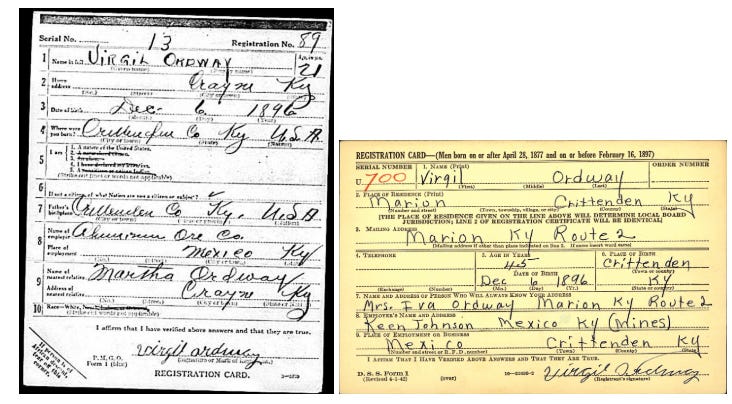 Serial No. 13 Registration No. 89
1 Name in full Virgil Ordway 21
2 Home address Crayne Ky
3 Date of birth Dec 6 1896
4 Where were you born? Crittenden Co Ky U.S.A
5 I am 1. A native of the United States.
6
If not a citizen, of what Nation are you a citizen or subject?
7 Father's birthplace Crittenden Co Ky. U.S.A
8 Name of employer Aluminum Ore Co.
Place of employment Mexico Ky
9 Name of nearest relative Martha Ordway
Address of nearest relative Crayne Ky
10 Race—White
I affirm that I have verified above answers and that they are true.
P.M.G.O.
Form 1 (blue)
Virgil Ordway
REGISTRATION CARD.
REGISTRATION CARD—(Men born on or after April 28, 1877 and on or before February 16, 1897)
SERIAL NUMBER 1. NAME (Print) ORDER NUMBER
U 700 Virgil Ordway
(First) (Middle) (Last)
2. PLACE OF RESIDENCE (Print)
Marion Crittenden Ky
(Town, township, village, or city) (County) (State)
[THE PLACE OF RESIDENCE GIVEN ON THE LINE ABOVE WILL DETERMINE LOCAL BOARD
JURISDICTION; LINE 2 OF REGISTRATION CERTIFICATE WILL BE IDENTICAL]
3. MAILING ADDRESS
Marion Ky Route 2
[Mailing address if other than place indicated on line 2. If same insert word same]
4. TELEPHONE 5. AGE IN YEARS 6. PLACE OF BIRTH
45 Crittenden
DATE OF BIRTH (Town or county)
Dec 6 1896 Ky
(Exchange) (Number) (Mo.) (Day) (Yr.) (State or country)
7. NAME AND ADDRESS OF PERSON WHO WILL ALWAYS KNOW YOUR ADDRESS
Mrs. Iva Ordway Marion Ky Route 2
8. EMPLOYER'S NAME AND ADDRESS
Keen Johnson Mexico Ky (Mines)
9. PLACE OF EMPLOYMENT OR BUSINESS
Mexico Crittenden Ky
(Number and street or R. F. D. number) (Town) (County) (State)
I AFFIRM THAT I HAVE VERIFIED ABOVE ANSWERS AND THAT THEY ARE TRUE.
D. S. S. Form 1
(Revised 4-1-42) (over) Virgil Ordway
(Registrant's signature)